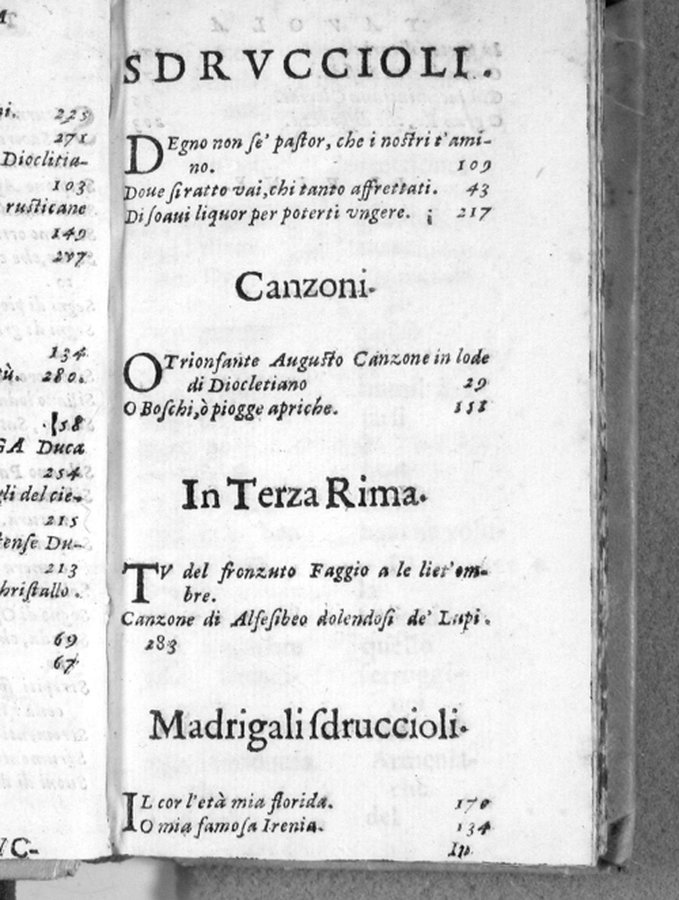 ni. 225
271
Dioclitia-
103
rusticane
149
207
134
ù. 280.
158
GA Duca
254
gli del cie-
215
tense Du-
213
hristallo.
69
67
VC-
SDRVCCIOLI.
DEgno non se' pastor, che i nostri t'ami-
no. 109
Doue si ratto vai, chi tanto affrettati. 43
Di soaui liquor per poterti vngere. 217
Canzoni.
O Trionfante Augusto Canzone in lode
di Diocletiano 29
O Boschi, ò piogge apriche. 151
In Terza Rima.
TV del fronzuto Faggio a le liet'om-
bre.
Canzone di Alfesibeo dolendosi de' Lupi.
283
Madrigali sdruccioli.
IL cor l'età mia florida. 170
O mia famosa Irenia. 134